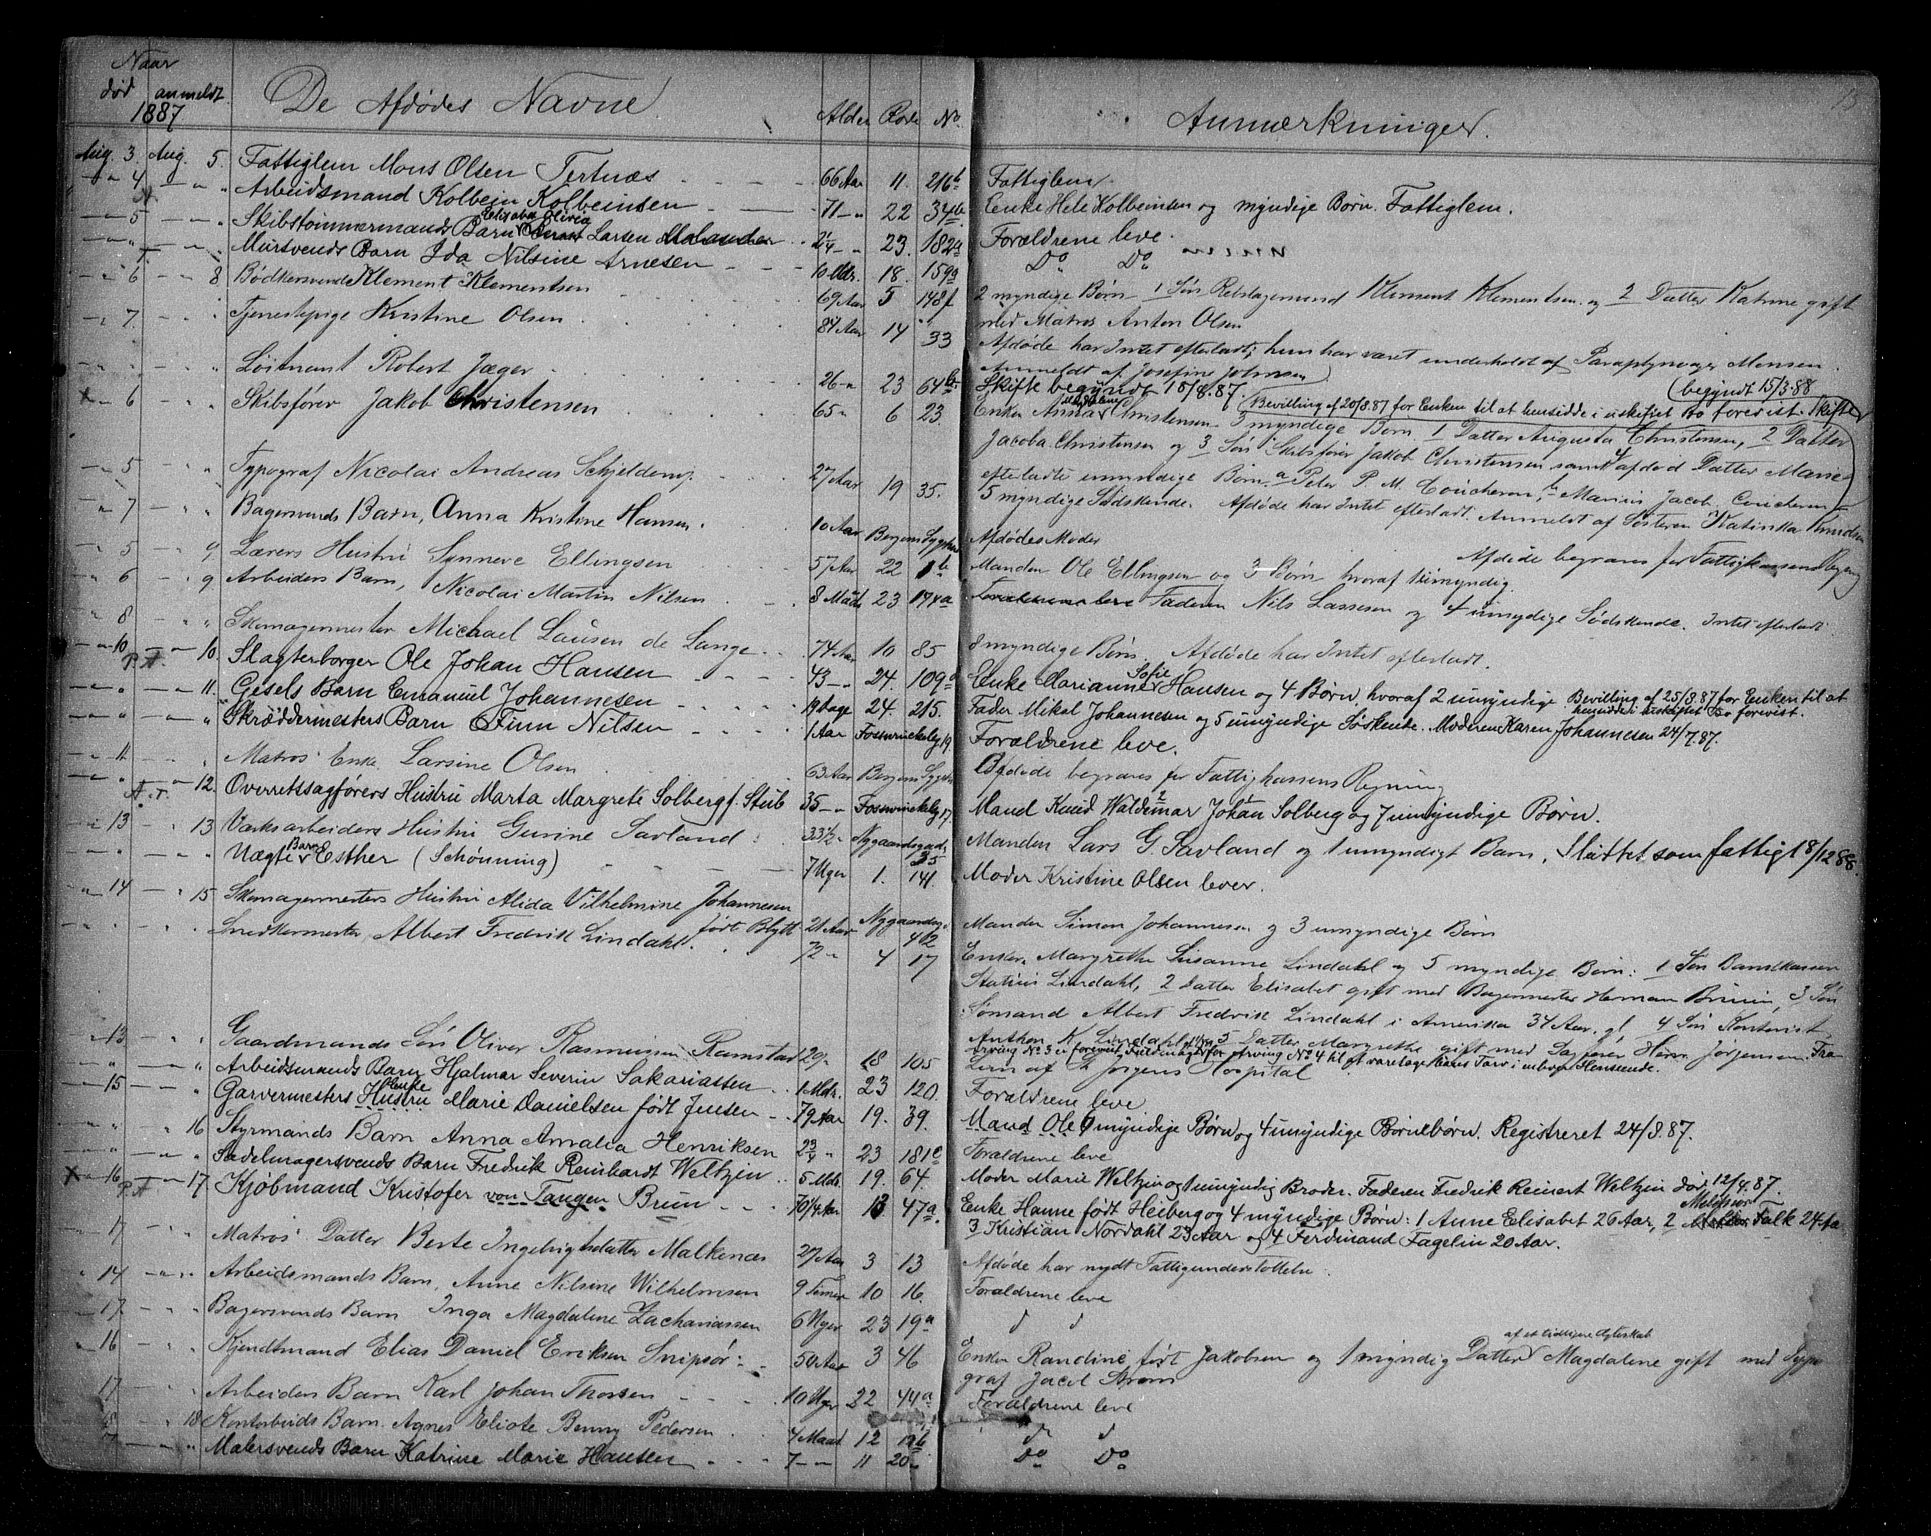 Naar
død anmeldt
1887
De Afdødes Navne
Alder Rode No.
Anmærkninger.
13
Aug. 3. Aug. 5. Fattiglem Mons Olsen Tertnæs 66 Aar 11. 216b Fattiglem.
4 Arbeidsmand Kolbein Kolbeinsen 71 22 34b Enke Hele Kolbeinsen og myndige Børn. Fattiglem.
5 Skibstømmermands Barn Elisaba Olivia Larsen 2¼ 23. 182a Forældrene leve.
Mursvends Barn Ida Nilsine Arnesen 10 Mdr. 18. 159a Do Do
6 8 Bødkersvend Klement Klementsen 69 Aar 5 148f 2 myndige Børn 1 Søn Klement Klementsen og 2 Datter Katrine gift
med Matros Anton Olsen
7. Tjenestepige Kristine Olsen 84 Aar 14 33 Afdøde har Intet efterladt; hun har været underholdt af Paraplymager Monsen.
Anmeldt af Josefine Johnsen
Løitnant Robert Jæger 26 23 64b Skifte begyndt 18/8.87.
begyndt 15/3.88
6 Skibsfører Jakob Christensen 65 6 23. Enke Anna Christensen. 3 myndige Børn. 1 Datter Augusta Christensen, 2 Datter
Bevilling af 20/8.87 for Enken til at hensidde i uskiftet Bo forevist. Skifte
Jacoba Christensen og 3 Søn Skibsfører Jakob Christensen samt afdød Datter Marie
efterladte umyndige Børn, a Peter P. M. Coucheron, b Marius Jacob Coucheron
5 Typograf Nicolai Andreas Schjelderup 27 Aar 19 35. 5 myndige Sødskende. Afdøde har Intet efterladt. Anmeldt af Søsteren Katinka Knudsen
7 Bagersvends Barn, Anna Kristine Hansen. 10 Aar Bergens Sygehus Afdødes Moder
Afdøde begraves for Fattigkassens Regning
5 9 Lærers Hustru Synneve Ellingsen 57 Aar 22 1b Manden Ole Ellingsen og 3 Børn hvoraf 1 umyndig.
6 9 Arbeiders Barn, Nicolai Martin Nilsen 8 Maan 23 194a Forældrene leve Faderen Nils Lassesen og 4 umyndige Sødskende. Intet efterladt.
8 Skomagermester Michael Lausen de Lange 74 Aar 10 85 8 myndige Børn, Afdøde har Intet efterladt.
10 10. Slagterborger Ole Johan Hansen 43 24. 109 Enke Marianne Sofie Hansen og 4 Børn, hvoraf 2 umyndige. Bevilling af 25/8.87 for Enken til at
hensidde i uskiftet Bo forevist.
11. Gesels Barn Emanuel Johannesen 19 Dage 24. 215. Fader Mikal Johannesen og 5 umyndige Søskende. Moderen Karen Johannesen 24/7.87.
Skræddermesters Barn Finn Nilsen 1 Aar Fosswinckelsg 19. Forældrene leve.
11 Matros' Enke Larsine Olsen 63 Aar Bergens Sygehus Afdøde begraves for Fattigkassens Regning
12. Overretssagførers Hustru Marta Margrete Solberg f. Stub 35 Fosswinckelsg 17. Mand Knud Waldemar Johan Solberg og 7 umyndige Børn.
13 13 Værksarbeiders Hustru Gurine Savland 33½ Nygaardsgad. 35 Manden Lars G. Savland og 1 umyndigt Barn. Sluttet som fattig 18/12 88.
Uægte Barn Esther (Schønning) 7 Uger 1. 141. Moder Kristine Olsen lever.
14 15 Skomagermesters Hustru Alida Vilhelmine Johannesen
født Blytt 21 Aar Nygaardsg. 42 Manden Simon Johannesen og 3 umyndige Børn
Snedkermester Albert Fredrik Lindahl. 72 4 17 Enken Margrethe Susanne Lindahl og 5 myndige Børn: 1 Søn
Statius Lindahl, 2 Datter Elisabet gift med Bagermester Herman Bruun, 3 Søn
Sømand Albert Fredrik Lindahl i Amerika 34 Aar gl, 4 Søn Kontorist
Anthon K. Lindahl, 5 Datter Margrethe gift med Sagfører Herm Jørgensen.
Arving No 3 er forevist, Fuldmagt for arving No 4 til at varetage hans Tarv i enhver Henseende.
13 Gaardmands Søn Oliver Rasmussen Ramstad 29 18 105 Lem af St Jørgens Hospital
Arbeidsmands Barn Hjalmar Severin Sakariassen 1 Mdr. 23 120. Forældrene leve
15 Garvermesters Hustru Enke Marie Danielsen født Jensen 79 Aar 19. 39. Mand Ole 6 myndige Børn og 4 umyndige Børnebørn. Registreret 24/8.87.
16 Styrmands Barn Anna Amalia Henriksen 2¾ 23 181c Forældrene leve
Sadelmagersvends Barn Fredrik Reinhardt Weltzin 5 Mdr. 19. 64. Moder Marie Weltzin og 1 umyndig Broder. Faderen Fredrik Reinert Weltzin død 12/4.87.
16 17. Kjøbmand Kristofer von Tangen Brun 70¼ Aar 13. 47a. Enke Hanne født Heiberg og 4 myndige Børn: 1 Anne Elisabet 26 Aar, 2 Falk 24 Aar
3 Kristian Nordahl 23 Aar og 4 Ferdinand Fagelin 20 Aar.
17 Matros' Datter Berte Ingebrigtsdatter Malkenæs 27 Aar 3 13 Afdøde har nydt Fattigunderstøttelse.
14 Arbeidsmands Barn, Anne Nilsine Wilhelmsen 9 Timer 10 16. Forældrene leve
17. Bagersvends Barn Inga Magdalene Zachariassen 6 Uger 23 19a d d
16 Kjendtmand Elias Daniel Eriksen Snipsør 50 Aar 3 46 Enken Randine født Jakobsen og 1 myndig Datter af et tidligere Ægteskab Magdalene gift med Typo
graf Jacob Strøm
17 Arbeiders Barn Karl Johan Thorsen 10 Uger 22 44a Forældrene leve
18 Kontorbuds Barn. Agnes Eliote Benny Pedersen 4 Maad 12 19b d d
Malersvends Barn Katrine Marie Hansen 7 11 20 Do Do